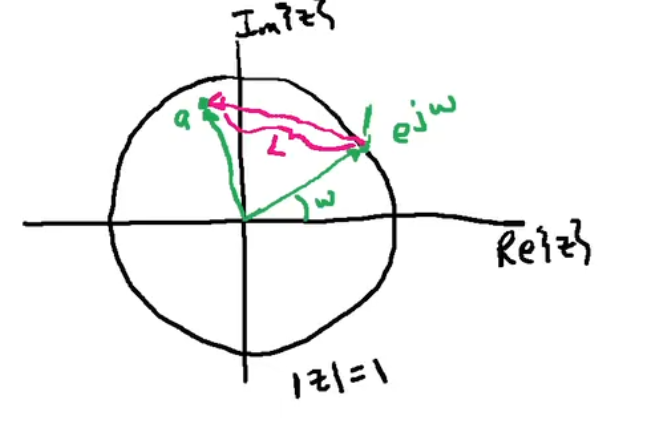 Im{z}
a
L
e^jw
w
Re{z}
|z|=1